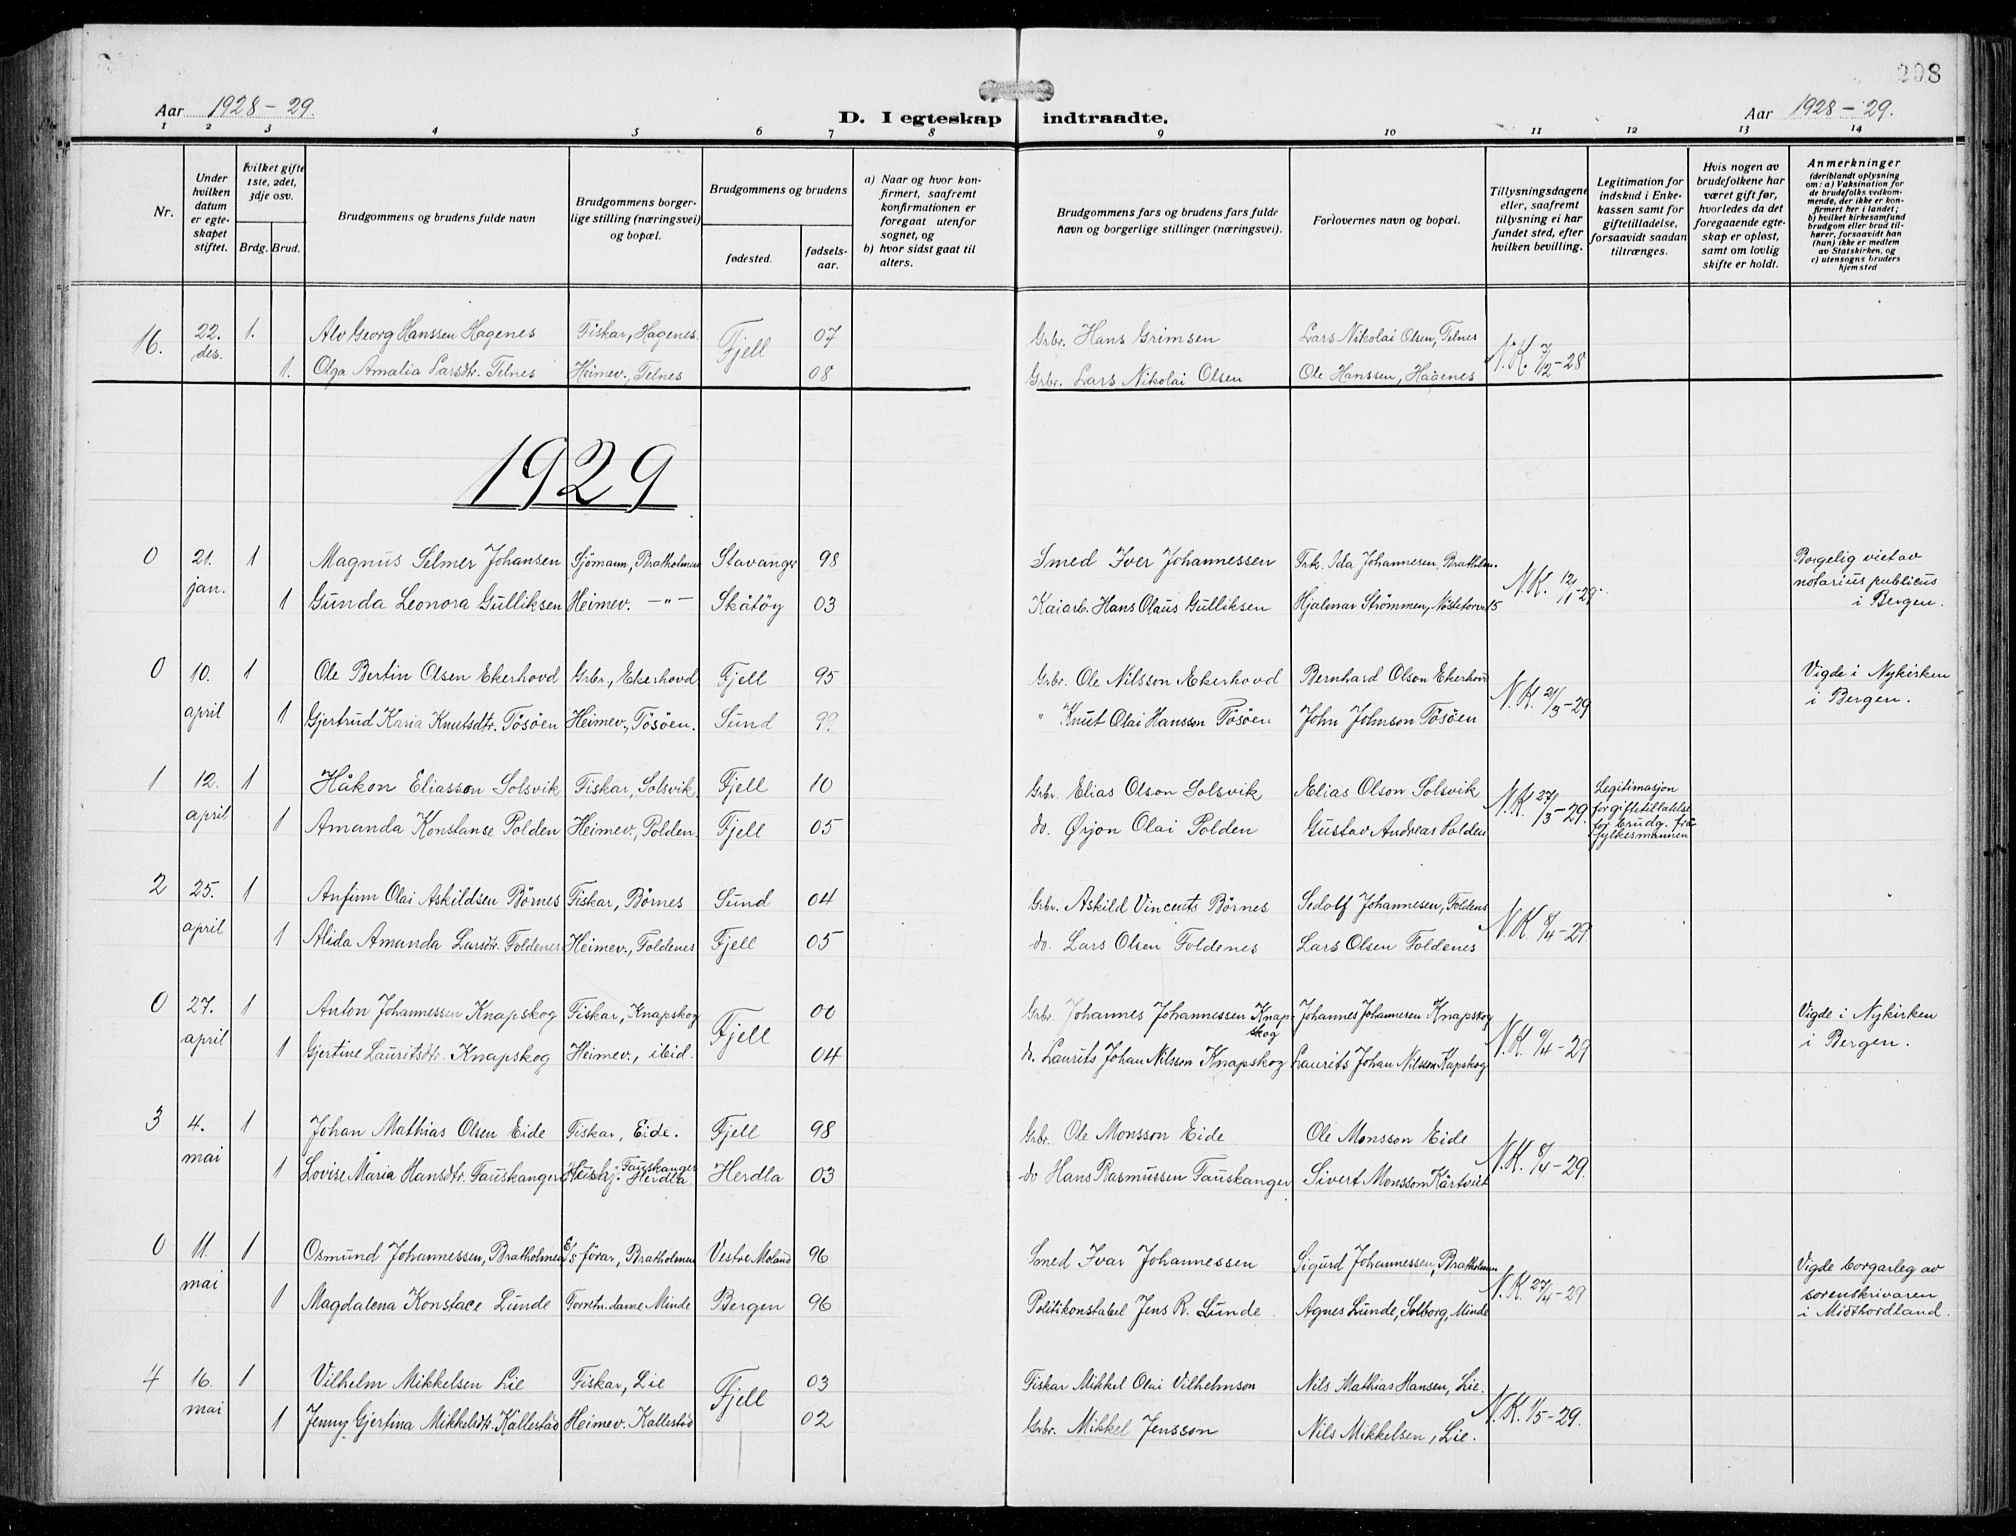 208
Aar 1928-29.
D. I egteskap indtraadte.
Aar 1928-29.
1 2 3 4 5 6 7 8 9 10 11 12 13 14
Nr.
Under hvilken datum er egteskapet stiftet.
Hvilket gifte 1ste, 2det, 3dje osv.
Brdg. Brud.
Brudgommens og brudens fulde navn
Brudgommens borgerlige stilling (næringsvei) og bopæl.
Brudgommens og brudens
fødested.
fødselsaar.
a) Naar og hvor konfirmert, saafremt konfirmationen er foregaat utenfor sognet, og
b) hvor sidst gaat til alters.
Brudgommens fars og brudens fars fulde navn og borgerlige stillinger (næringsvei).
Forlovernes navn og bopæl.
Tillysningsdagene eller, saafremt tillysning ei har fundet sted, efter hvilken bevilling.
Legitimation for indskud i Enkekassen samt for giftetilladelse, forsaavidt saadan tiltrænges.
Hvis nogen av brudefolkene har været gift før, hvorledes da det foregaaende egteskap er opløst, samt om lovlig skifte er holdt.
Anmerkninger (deriblandt oplysning om: a) Vaksination for de brudefolks vedkommende, der ikke er konfirmert her i landet; b) hvilket kirkesamfund brudgom eller brud tilhører, forsaavidt han (hun) ikke er medlem av Statskirken, og c) utensogns bruders hjemsted
16. 22. des. 1. Alv Georg Hanssen Hagenes Fiskar, Hagenes. Fjell 07 Grbr. Hans Grimsen Lars Nikolai Olsen, Telnes N.K. 7/12-28
1. Olga Amalia Larsdtr. Telnes Heimev., Telnes 08 Grbr. Lars Nikolai Olsen Ole Hanssen, Hagenes
1929
0 21. jan. 1 Magnus Selmer Johansen Sjömann, Bratholmen Stavanger 98 Smed Iver Johannessen Frk. Ida Johannesen, Bratholm. N.K. 12/1-29. Borgelig viet av notarius publicus i Bergen.
1 Gunda Leonora Gulliksen Heimev. -"- Skåtöy 03 Kaiarb. Hans Olaus Gulliksen Hjalmar Strömmen, Nöstetorvet 15
0 10. april 1 Ole Bertin Olsen Ekerhovd Grbr., Ekerhovd Fjell 95 Grbr. Ole Nilsson Ekerhovd Bernhard Olson Ekerhovd N.K. 21/3-29 Vigde i Nykirken i Bergen.
1 Gjertrud Karia Knutsdtr. Tösöen Heimev., Tösöen. Sund 99 " Knut Olai Hansson Tösöen John Johnson Tösöen
1 12. april 1 Håkon Eliasson Solsvik Fiskar, Solsvik. Fjell 10 Grbr. Elias Olson Solsvik Elias Olson Solsvik N.K. 27/3-29. Legitimasjon for giftetillatelse for brudg. frå fylkesmannen
1 Amanda Konstanse Polden Heimev., Polden Fjell 05 do. Ørjon Olai Polden Gustav Andreas Polden
2 25. april 1 Anfinn Olai Askildsen Börnes Fiskar, Börnes Sund 04 Grbr. Askild Vincents Börnes Sedolf Johannesen, Foldenes N.K. 8/4-29.
1 Alida Amanda Larsdtr. Foldenes Heimev., Foldenes Fjell 05 do. Lars Olsen Foldenes Lars Olsen Foldenes
0 27. april 1 Anton Johannessen Knapskog Fiskar, Knapskog Fjell 00 Grbr. Johannes Johannessen Knapskog Johannes Johannesen Knapskog N.K. 9/4-29 Vigde i Nykirken i Bergen.
1 Gjertine Lauritsdtr. Knapskog Heimev., ibid. 04 do. Laurits Johan Nilsson Knapskog Laurits Johan Nilsson Kapskog
3 4. mai 1 Johan Mathias Olsen Eide Fiskar, Eide. Fjell 98 Grbr. Ole Monsson Eide Ole Monsson Eide N.K. 8/4-29.
1 Lovise Maria Hansdtr. Fauskanger Hushj. Fauskanger Herdla Herdla 03 do Hans Rasmussen Fauskanger Sivert Monsson Kårtveit
0 11. mai 1 Osmund Johannessen, Bratholmen E/s förar, Bratholmen Vestre Moland 96 Smed Ivar Johannessen Sigurd Johannessen, Bratholmen N.K. 27/4-29 Vigde borgarleg av sorenskrivaren i Midthordland.
1 Magdalena Konstace Lunde Forretn.dame Minde Bergen 96 Politikonstabel Jens R. Lunde Agnes Lunde, Solborg, Minde
4 16. mai 1 Vilhelm Mikkelsen Lie Fiskar, Lie Fjell 03 Fiskar Mikkel Olai Vilhelmson Nils Mathias Hansen, Lie. N.K. 1/5-29.
1 Jenny Gjertina Mikkelsdtr. Kållestad Heimev. Kallestad 02 Grbr. Mikkel Jensson Nils Mikkelsen, Lie.